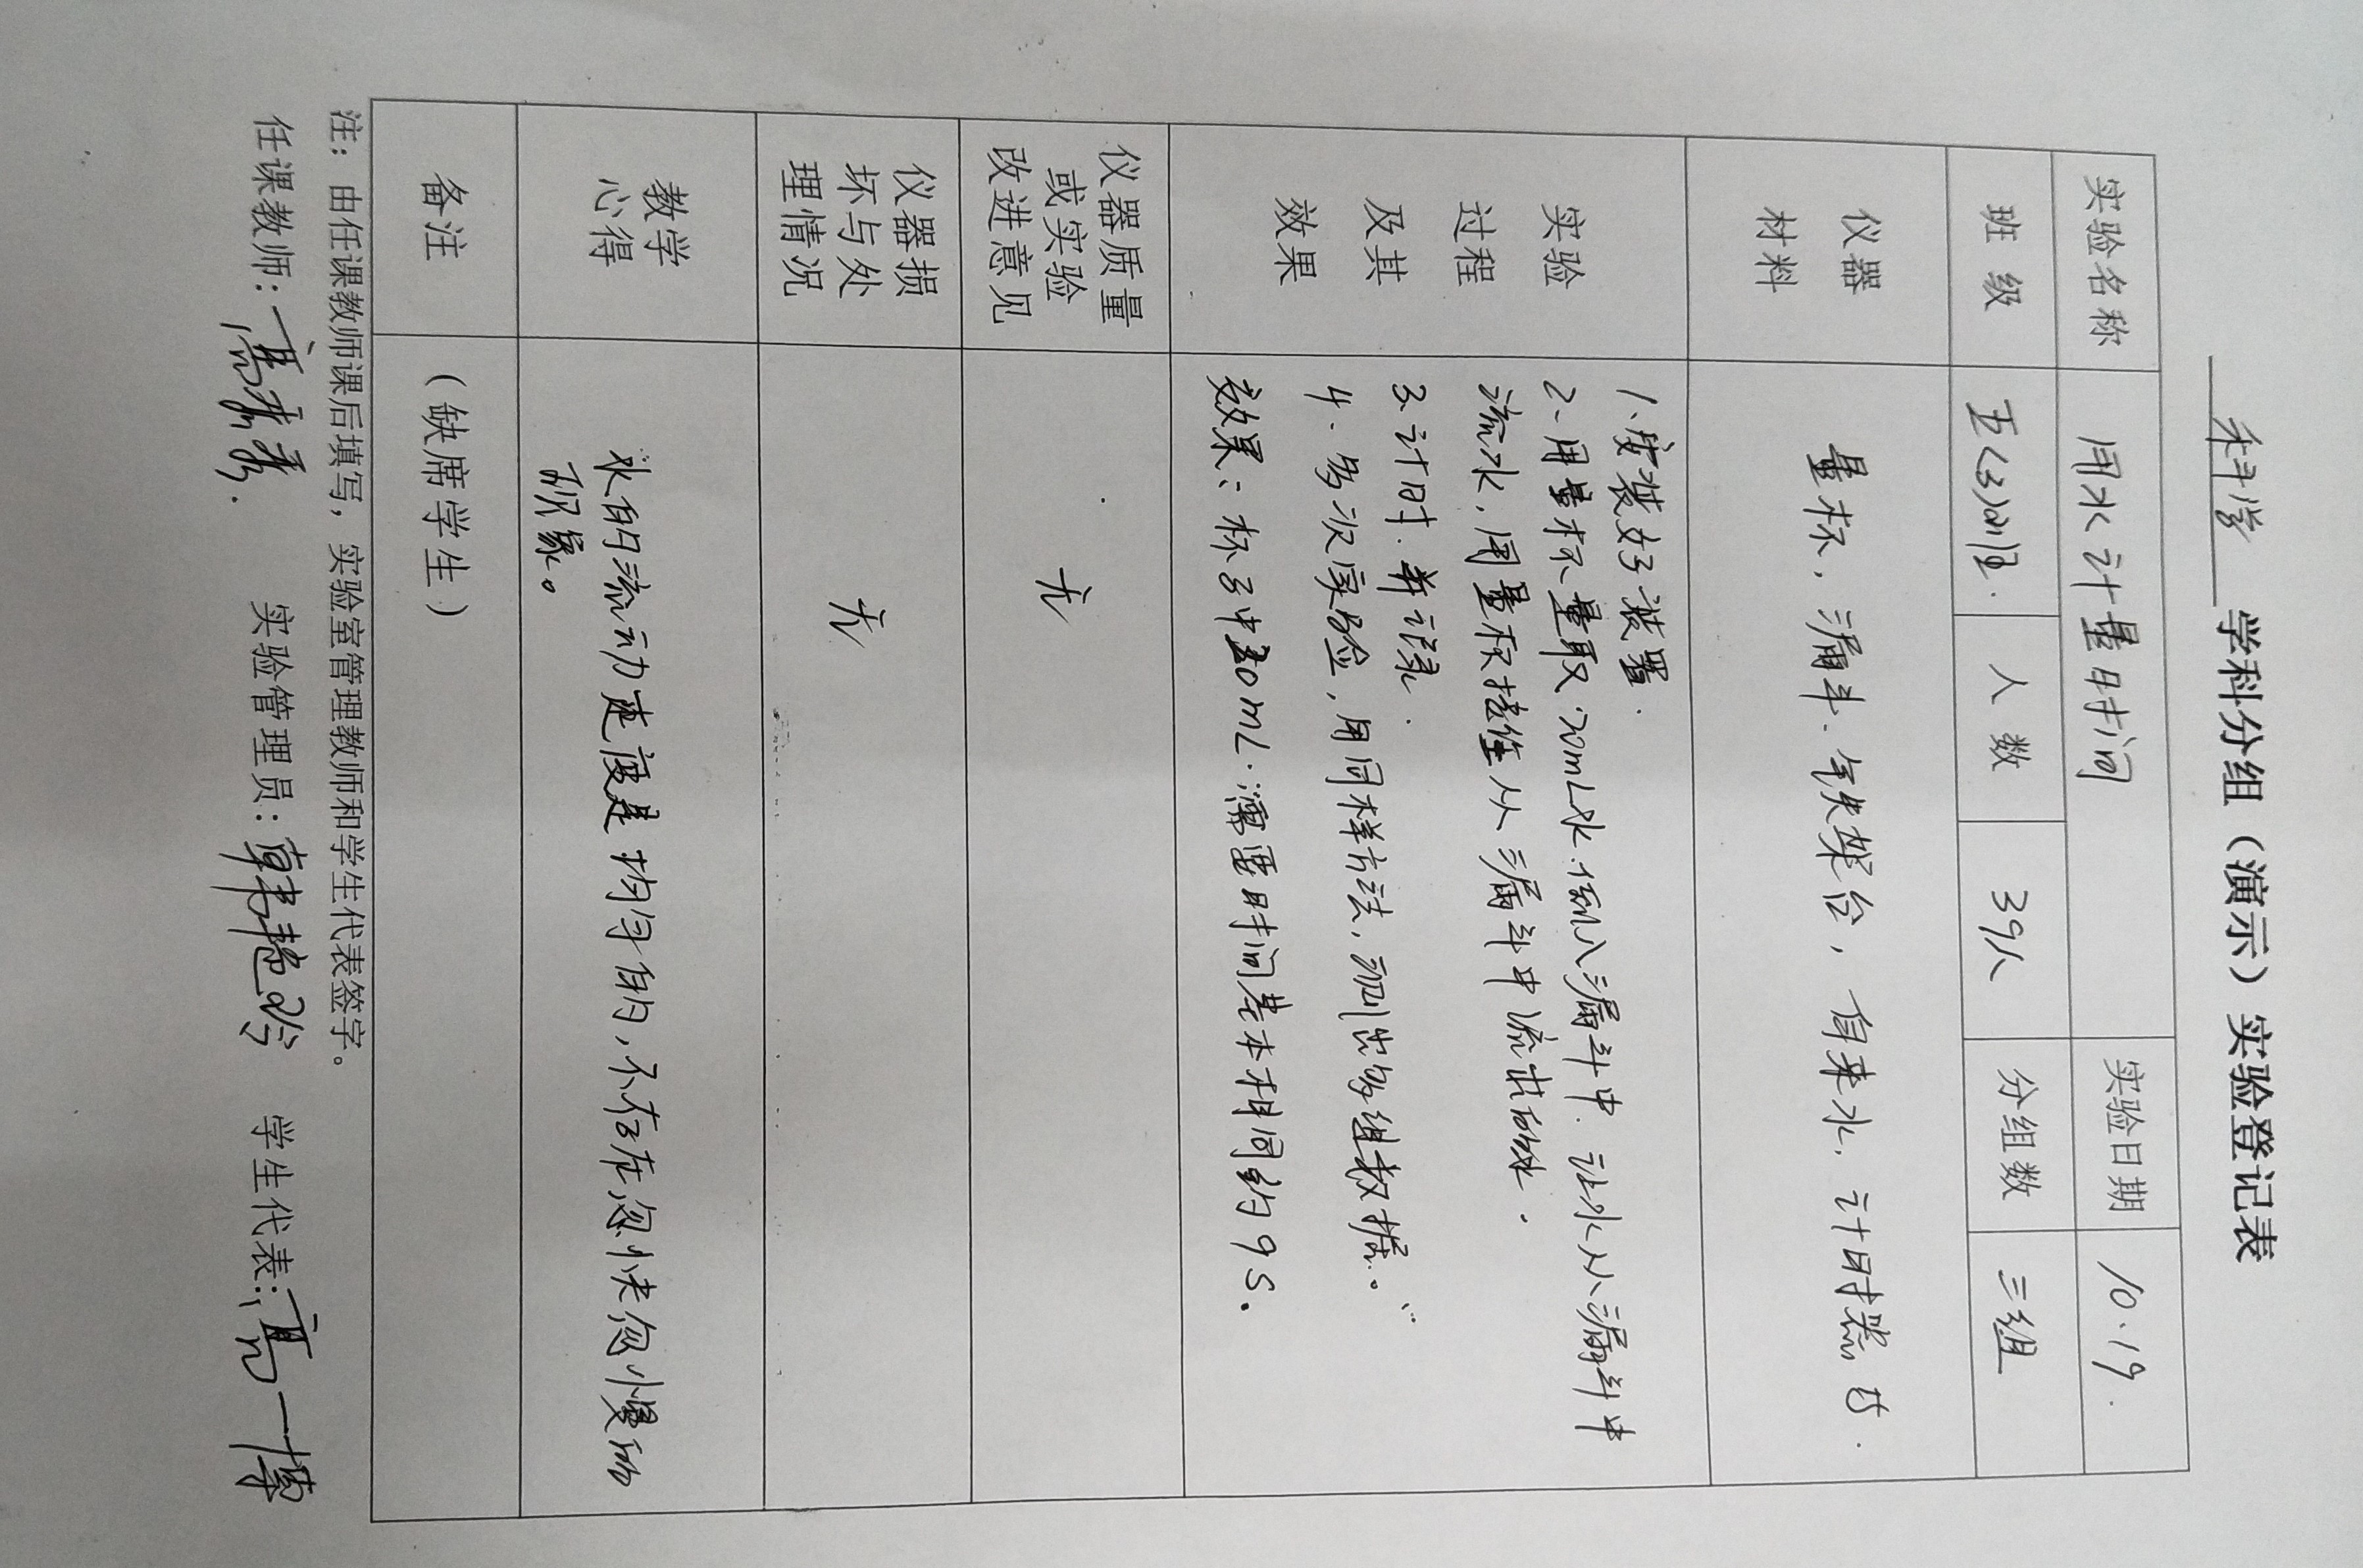 科学 学科分组（演示）实验登记表
实验名称 用水计量时间 实验日期 10.19.
班 级 五(3)班. 人 数 39人 分组数 三组
仪器
材料
量杯，漏斗、铁架台，自来水、计时器
实验
过程
及其
效果
1、安装好装置.
2、用量杯量取20mL水倒入漏斗中.让水从漏斗中
流水，用量杯接住从漏斗中流出的水.
3、计时.并记录.
4、多次实验，用同样方法，测出多组数据。
效果：杯子中 30mL.需要时间基本相同约9S.
仪器质量
或实验
改进意见
无
仪器损
坏与处
理情况
无
教学
心得
水的流动速度是均匀的，不存在忽快忽慢的
现象。
备注 （缺席学生）
注：由任课教师课后填写，实验室管理教师和学生代表签字。
任课教师： 实验管理员：韩艳玲 学生代表：高一博